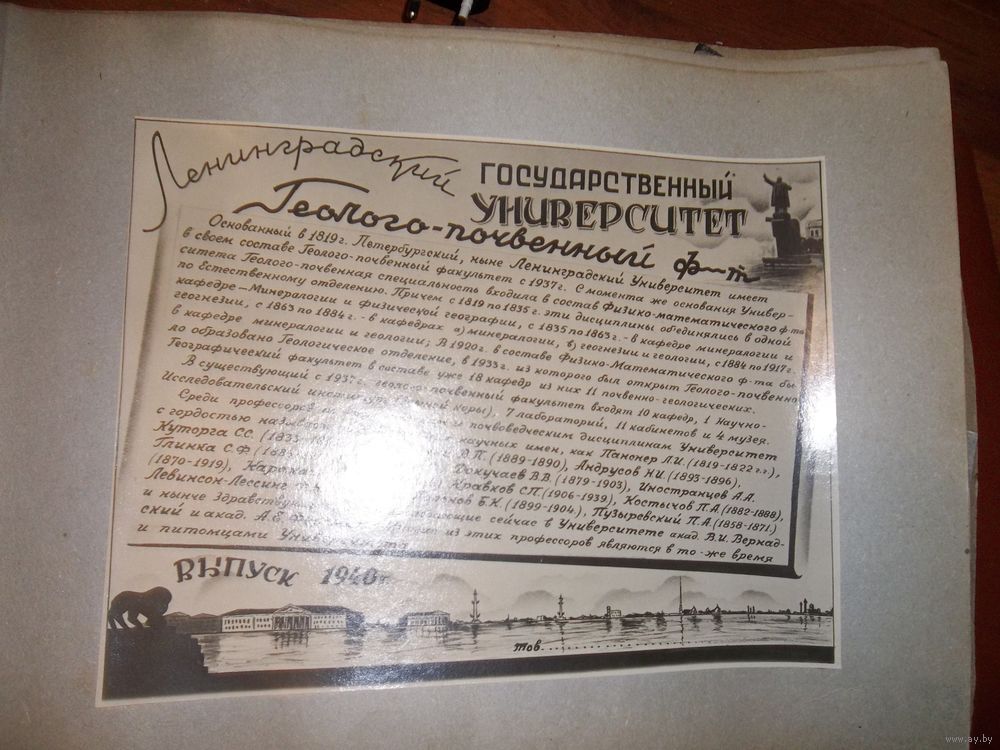 Ленинградский ГОСУДАРСТВЕННЫЙ
УНИВЕРСИТЕТ
Геолого-почвенный ф-т
Основанный в 1819 г. Петербургский, ныне Ленинградский Университет имеет
в своем составе Геолого-почвенный факультет с 1937г. С момента же основания Универ-
ситета Геолого-почвенная специальность входила в состав Физико-математического ф-та
по Естественному отделению. Причем с 1819 по 1835 г. эти дисциплины объединялись в одной
кафедре – Минералогии и физической географии, с 1835 по 1863 г. - в кафедре минералогии и
геогнезии, с 1863 по 1884 г. - в кафедрах а) минералогии, в) геогнезии и геологии, с 1884 по 1917 г.
в кафедре минералогии и геологии; В 1920 г. в составе Физико-Математического ф-та бы-
ло образовано Геологическое отделение, в 1933 г. из которого был открыт Геолого-почвенно
Географический факультет в составе уже 18 кафедр из них 11 почвенно-геологических.
В существующий с 1937г. геолого-почвенный факультет входят 10 кафедр, 1 Научно-
Исследовательский институт (земной коры), 7 лабораторий, 11 кабинетов и 4 музея.
Среди профессоров и почвоведческим дисциплинам Университет
с гордостью научных имен, как Панонер Л.И. (1819-1822 г.г.),
Куторга С.С. (1833- П. (1889-1890), Андрусов Н.И. (1893-1896),
Глинка С.Ф. Докучаев В.В. (1879-1903), Иностранцев А.А.
(1870-1919), Кравков С.П. (1906-1939), Костычов П.А. (1882-1888),
Левинсон-Лессинг Б.К. (1899-1904), Пузыревский П.А. (1858-1871)
и нынче Здравствующие сейчас в Университете акад. В.И. Вернад-
ский и акад. А.Е. из этих профессоров являются в то-же время
и питомцами
ВЫПУСК 1940г
тов.
www.ay.by